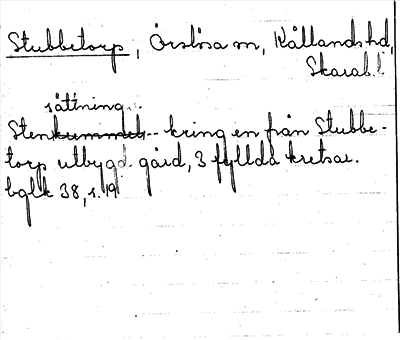 Stubbetorp, Örslösa sn, Kållands hd,
Skarab. l.
sättning
Stenkummel kring en från Stubbe-
torp utbygd gård, 3 fyllda kretsar.
bglk 38, s. 19